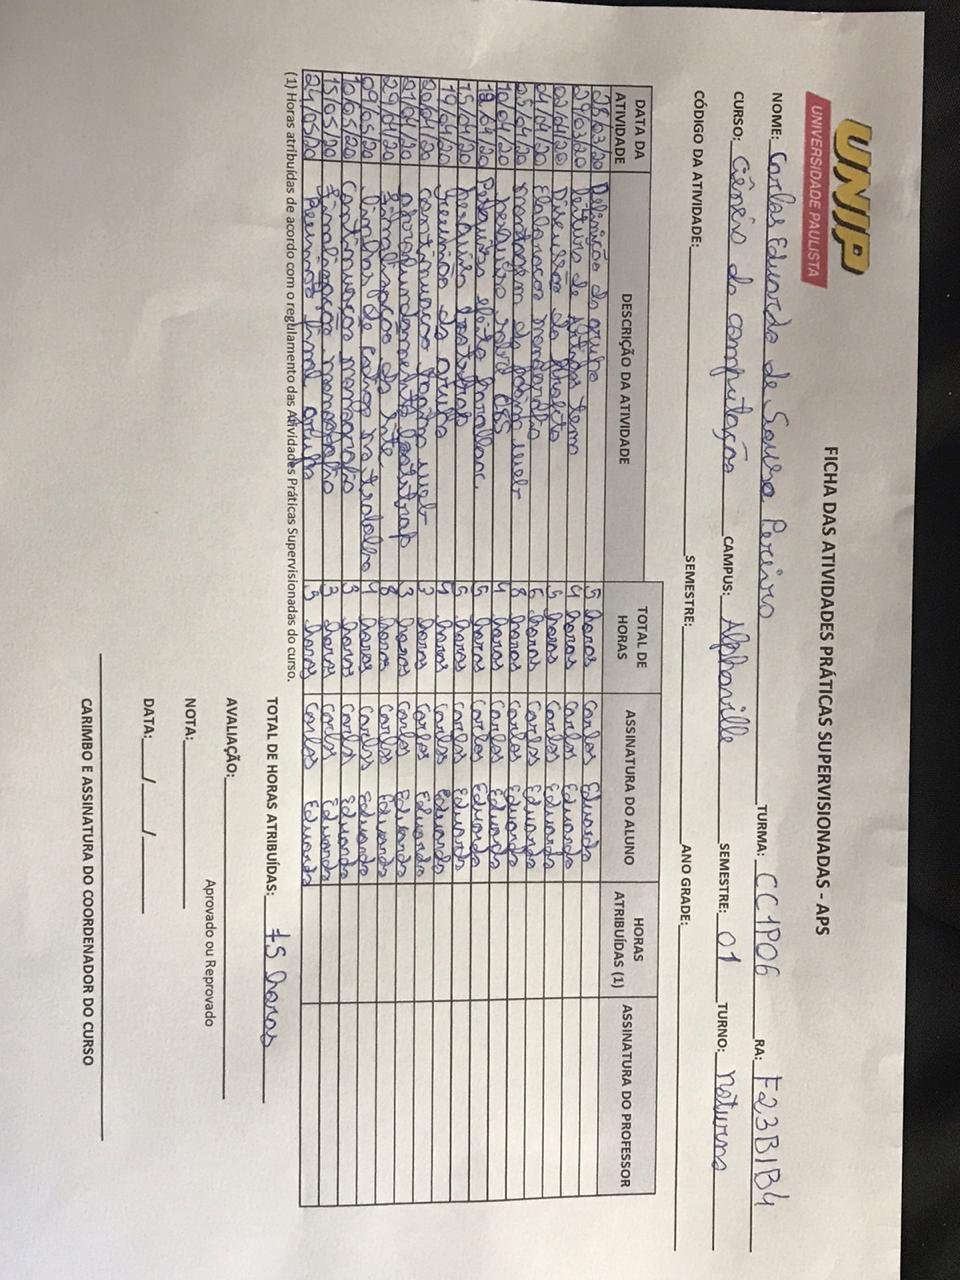 UNIP
UNIVERSIDADE PAULISTA
FICHA DAS ATIVIDADES PRÁTICAS SUPERVISIONADAS - APS
NOME: Carlos Eduardo de Souza Pereira TURMA: CC1P06 RA: F23B1B4
CURSO: Ciência da computação CAMPUS: Alphaville SEMESTRE: 01 TURNO: noturno
CÓDIGO DA ATIVIDADE: SEMESTRE: ANO GRADE:
DATA DA ATIVIDADE DESCRIÇÃO DA ATIVIDADE TOTAL DE HORAS ASSINATURA DO ALUNO HORAS ATRIBUÍDAS (1) ASSINATURA DO PROFESSOR
28/03/20 Definição do grupo 5 horas Carlos Eduardo
29/03/20 Leitura de Artigos tema 4 horas Carlos Eduardo
02/04/20 Discussão do projeto 5 horas Carlos Eduardo
04/04/20 monografia 6 horas Carlos Eduardo
05/04/20 montagem da página web 8 horas Carlos Eduardo
10/04/20 pesquisa sobre CSS 4 horas Carlos Eduardo
/04/20 Pesquisa efeito parallax. 5 horas Carlos Eduardo
15/04/20 bootstrap 5 horas Carlos Eduardo
19/04/20 reunião do grupo 4 horas Carlos Eduardo
20/04/20 continuação página web 3 horas Carlos Eduardo
21/04/20 aprofundamento bootstrap 3 horas Carlos Eduardo
29/04/20 finalização do site 8 horas Carlos Eduardo
09/05/20 linhas de código no trabalho 4 horas Carlos Eduardo
12/05/20 continuação monografia 3 horas Carlos Eduardo
15/05/20 finalização monografia 3 horas Carlos Eduardo
24/05/20 Reunião final grupo 5 horas Carlos Eduardo
(1) Horas atribuídas de acordo com o regulamento das Atividades Práticas Supervisionadas do curso.
TOTAL DE HORAS ATRIBUÍDAS: 75 horas
AVALIAÇÃO:
Aprovado ou Reprovado
NOTA:
DATA: __/__/__
CARIMBO E ASSINATURA DO COORDENADOR DO CURSO